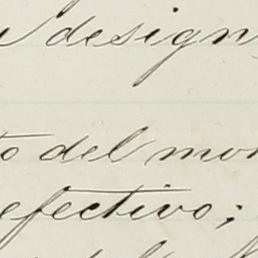 design
to del mon
efectivo;